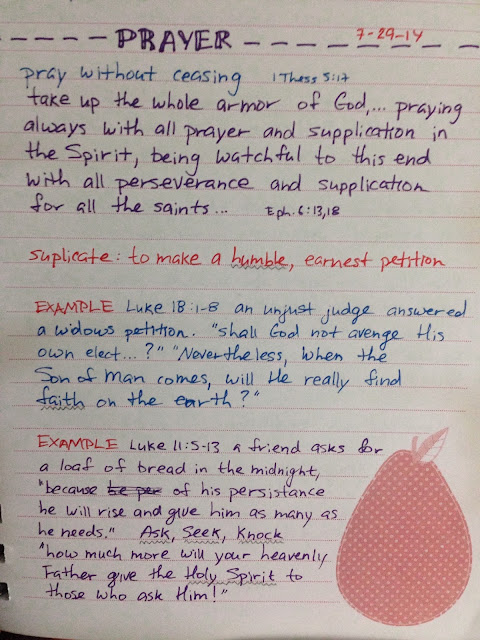 PRAYER 7-29-14
pray without ceasing 1 Thess 5:17
take up the whole armor of God,... praying
always with all prayer and supplication in
the Spirit, being watchful to this end
with all perseverance and supplication
for all the saints... Eph. 6:13,18
suplicate: to make a humble, earnest petition
EXAMPLE Luke 18:1-8 an unjust judge answered
a widows petition. "shall God not avenge His
own elect...?" "Nevertheless, when the
Son of Man comes, will He really find
faith on the earth?"
EXAMPLE Luke 11:5-13 a friend asks for
a loaf of bread in the midnight,
"because be per of his persistance
he will rise and give him as many as
he needs." Ask, Seek, Knock
"how much more will your heavenly
Father give the Holy Spirit to
those who ask Him!"